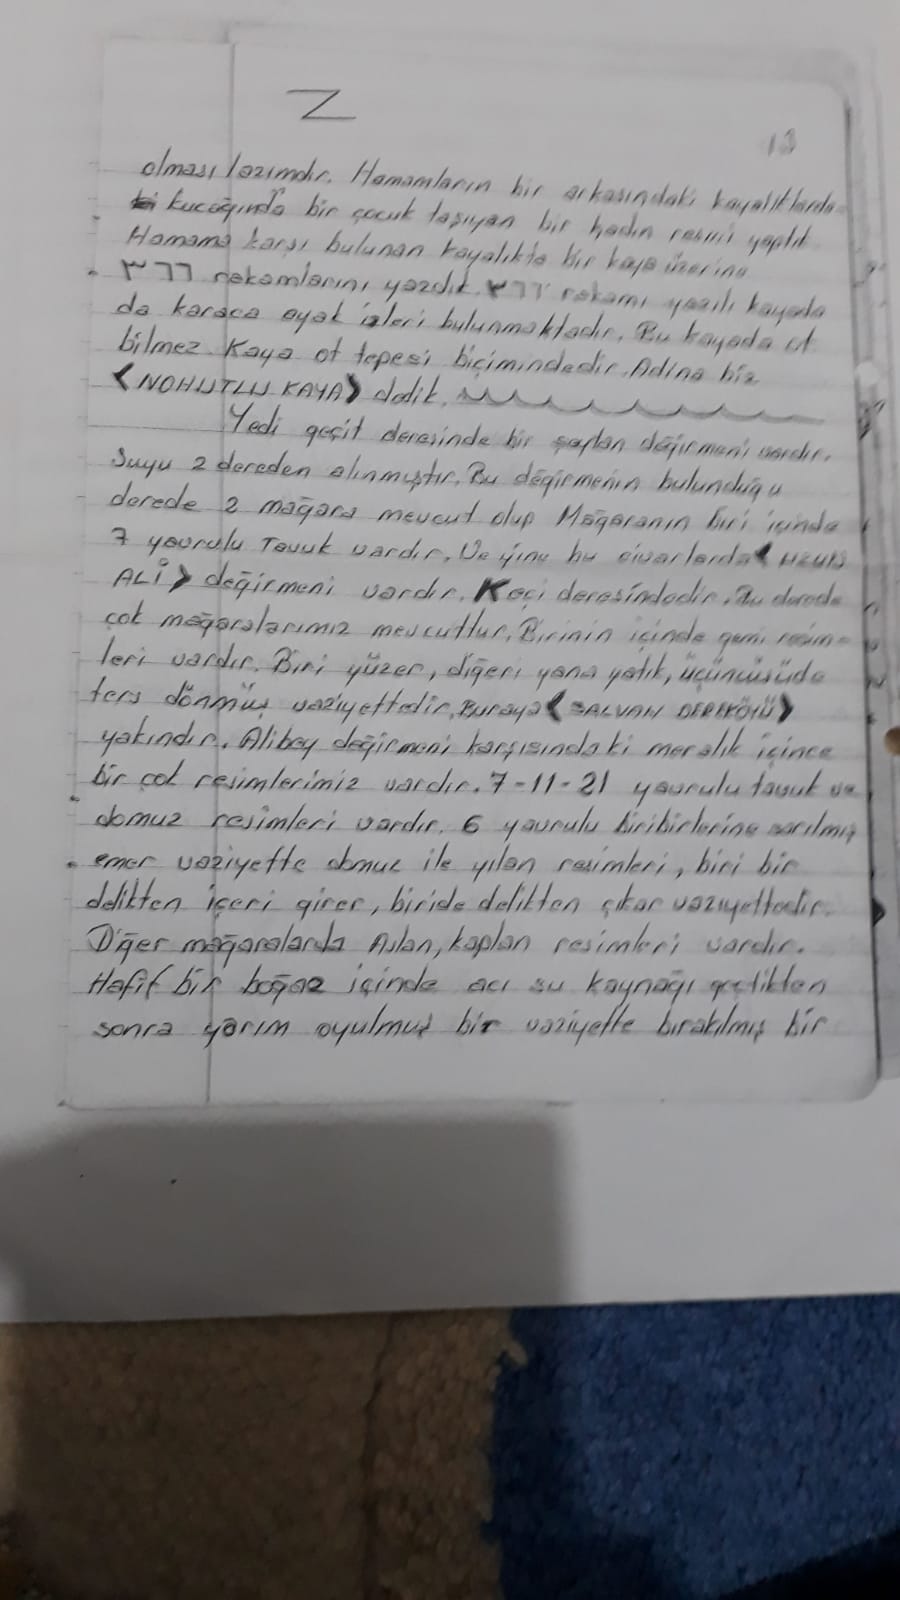 Z
12
olması lazımdır. Hamamların bir arkasındaki kayalıklarda
ki kucağında bir çocuk taşıyan bir kadın resmi yaptık
Hamama karşı bulunan kayalıkta bir kaya üzerine
٣٦٦ rakamlarını yazdık. ٣٦٦ rakamı yazılı kayada
da karaca ayak izleri bulunmaktadır. Bu kayada ot
bilmez. Kaya ot tepesi biçimindedir. Adına biz
<NOHUTLU KAYA> dedik.
Yedi geçit deresinde bir şaplan değirmeni vardır.
Suyu 2 dereden alınmıştır. Bu değirmenin bulunduğu
derede 2 mağara mevcut olup Mağaranın biri içinde
7 yavrulu Tavuk vardır. Ve yine bu civarlarda <UZUN
ALİ> değirmeni vardır. Keçi deresindedir. Bu derede
çok mağaralarımız mevcuttur. Birinin içinde gemi resim-
leri vardır. Biri yüzer, diğeri yana yatık, üçüncüsüde
ters dönmüş vaziyettedir. Buraya <SALVAN DEREKÖYÜ>
yakındır. Alibey değirmeni karşısındaki meralık içince
bir çok resimlerimiz vardır. 7-11-21 yavrulu tavuk ve
domuz resimleri vardır. 6 yavrulu biribirlerine sarılmış
emer vaziyette domuz ile yılan resimleri, biri bir
delikten içeri girer, biride delikten çıkar vaziyettedir.
Diğer mağaralarda Aslan, kaplan resimleri vardır.
Hafif bir boğaz içinde acı su kaynağı geçtikten
sonra yarım oyulmuş bir vaziyette bırakılmış bir